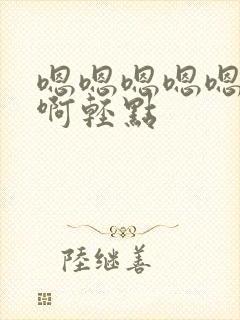 嗯嗯嗯嗯嗯
啊轻點
陸继善